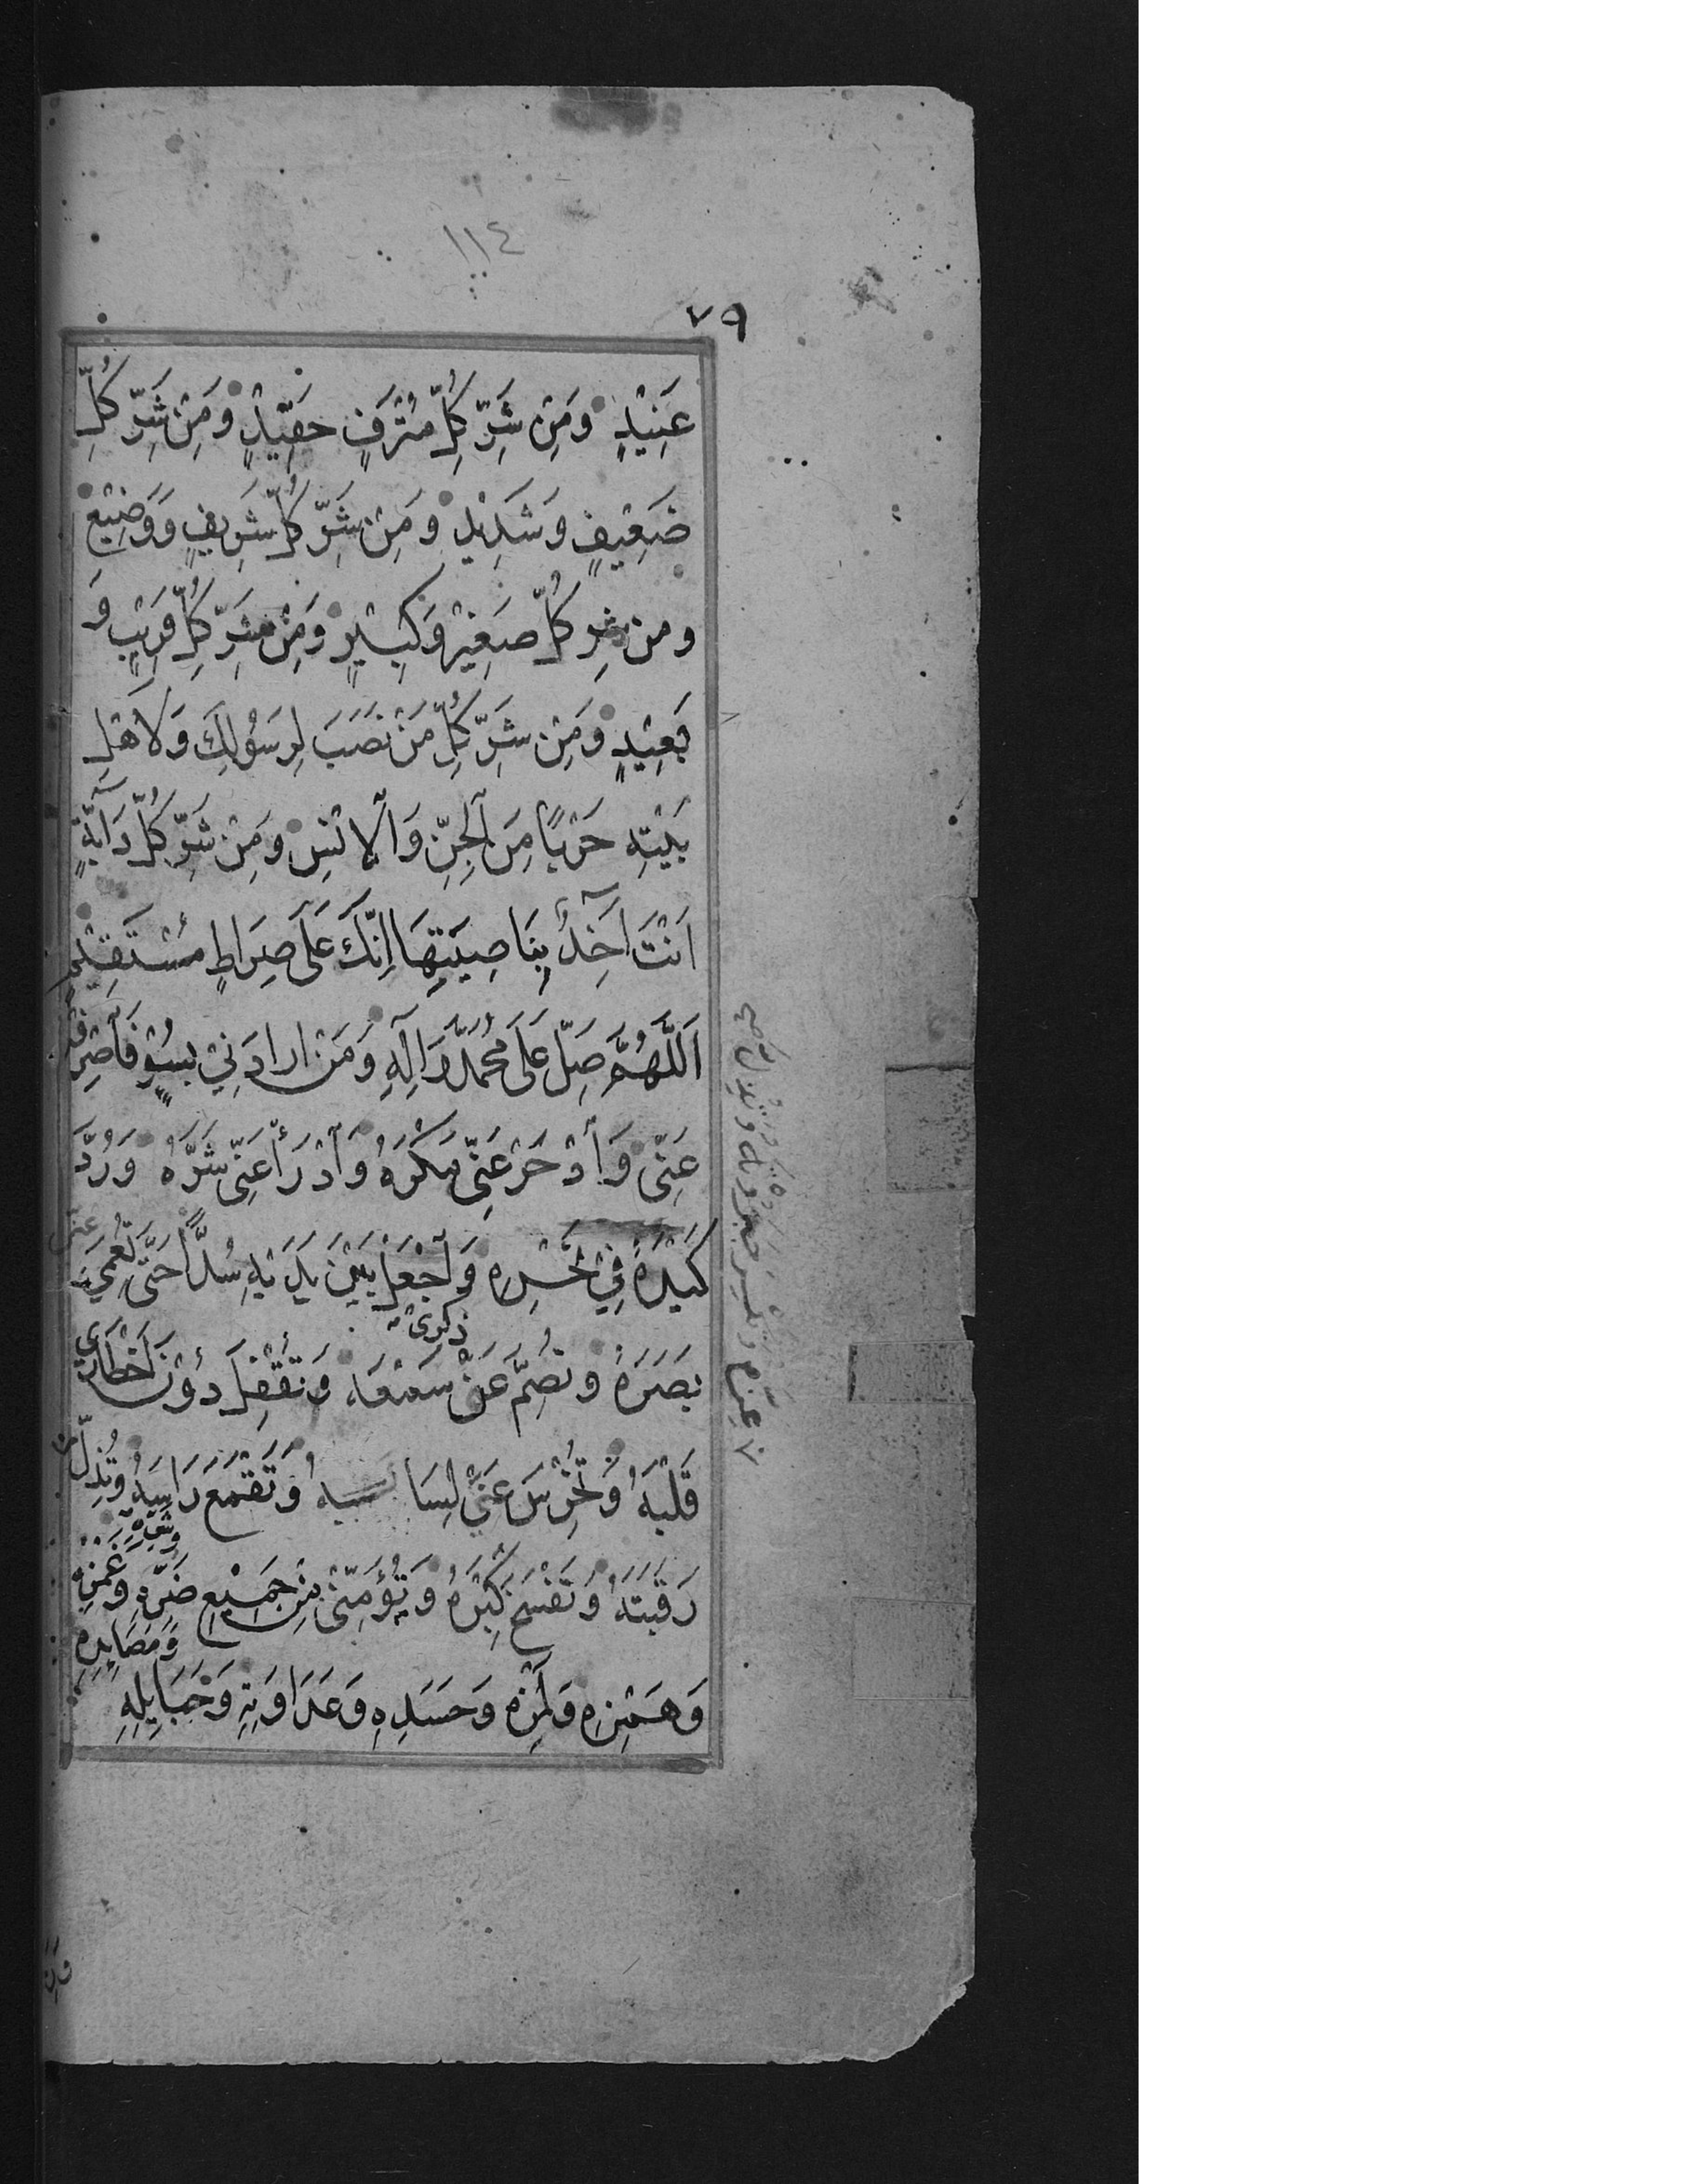 ١١٤
٧٩
عَنِيْدٍ وَمِنْ شَرِّ كُلِّ مُتْرَفٍ حَفِيْدٍ وَمِنْ شَرِّ كُلِّ
ضَعِيْفٍ وَشَدِيْدٍ وَمِنْ شَرِّ كُلِّ شَرِيفٍ وَوَضِيْعٍ
ومن شر كلّ صَغِيْرٍ وَكَبِيْرٍ وَمِنْ شَرِّ كُلِّ قَرِيْبٍ وَ
بَعِيْدٍ وَمِنْ شَرِّ كُلِّ مَنْ نَصَبَ لِرَسُوْلِكَ وَلِاَهْلِ
بَيْتِهِ حَرْبًا مِنَ الْجِنِّ وَالْاِنْسِ وَمِنْ شَرِّ كُلِّ دَآبَّةٍ
اَنْتَ آخِذٌ بِنَاصِيَتِهَا اِنَّكَ عَلَى صِرَاطٍ مُسْتَقِيْمٍ
اَللّٰهُمَّ صَلِّ عَلَى مُحَمَّدٍ وَاٰلِهِ وَمَنْ ارادَنِيْ بِسُوْءٍ فَاصْرِفْهُ
عَنِّى وَادْحَرْ عَنِّى مَكْرَهُ وَادْرَأْ عَنِّى شَرَّهُ وَرُدَّ
كَيْدَهُ فِيْ نَحْرِهِ وَاجْعَلْ بَيْنَ يَدَيْهِ سُدًّا حَتَّى تُعْمِيَ عَنِّى
بَصَرَهُ وَتُصِمَّ عَنْ ذكرى سَمْعَهُ وَتُقْفِلَ دُوْنَ اِخْطَارِى
قَلْبَهُ وَتُخْرِسَ عَنِّى لِسَانَهُ وَتَقْمَعَ رَاسَهُ وَتُذِلَّ
رَقَبَتَهُ وَتَفْسَخَ كِبْرَهُ وَتُؤْمِنَنِى مِنْ جَمِيْعِ ضَرِّهِ وَشَرِّهِ وَغَمْزِهِ
وَهَمْزِهِ وَلَمْزِهِ وَحَسَدِهِ وَعَدَاوَتِهِ وَحَبَايِلِهِ وَمَصَايِدِهِ